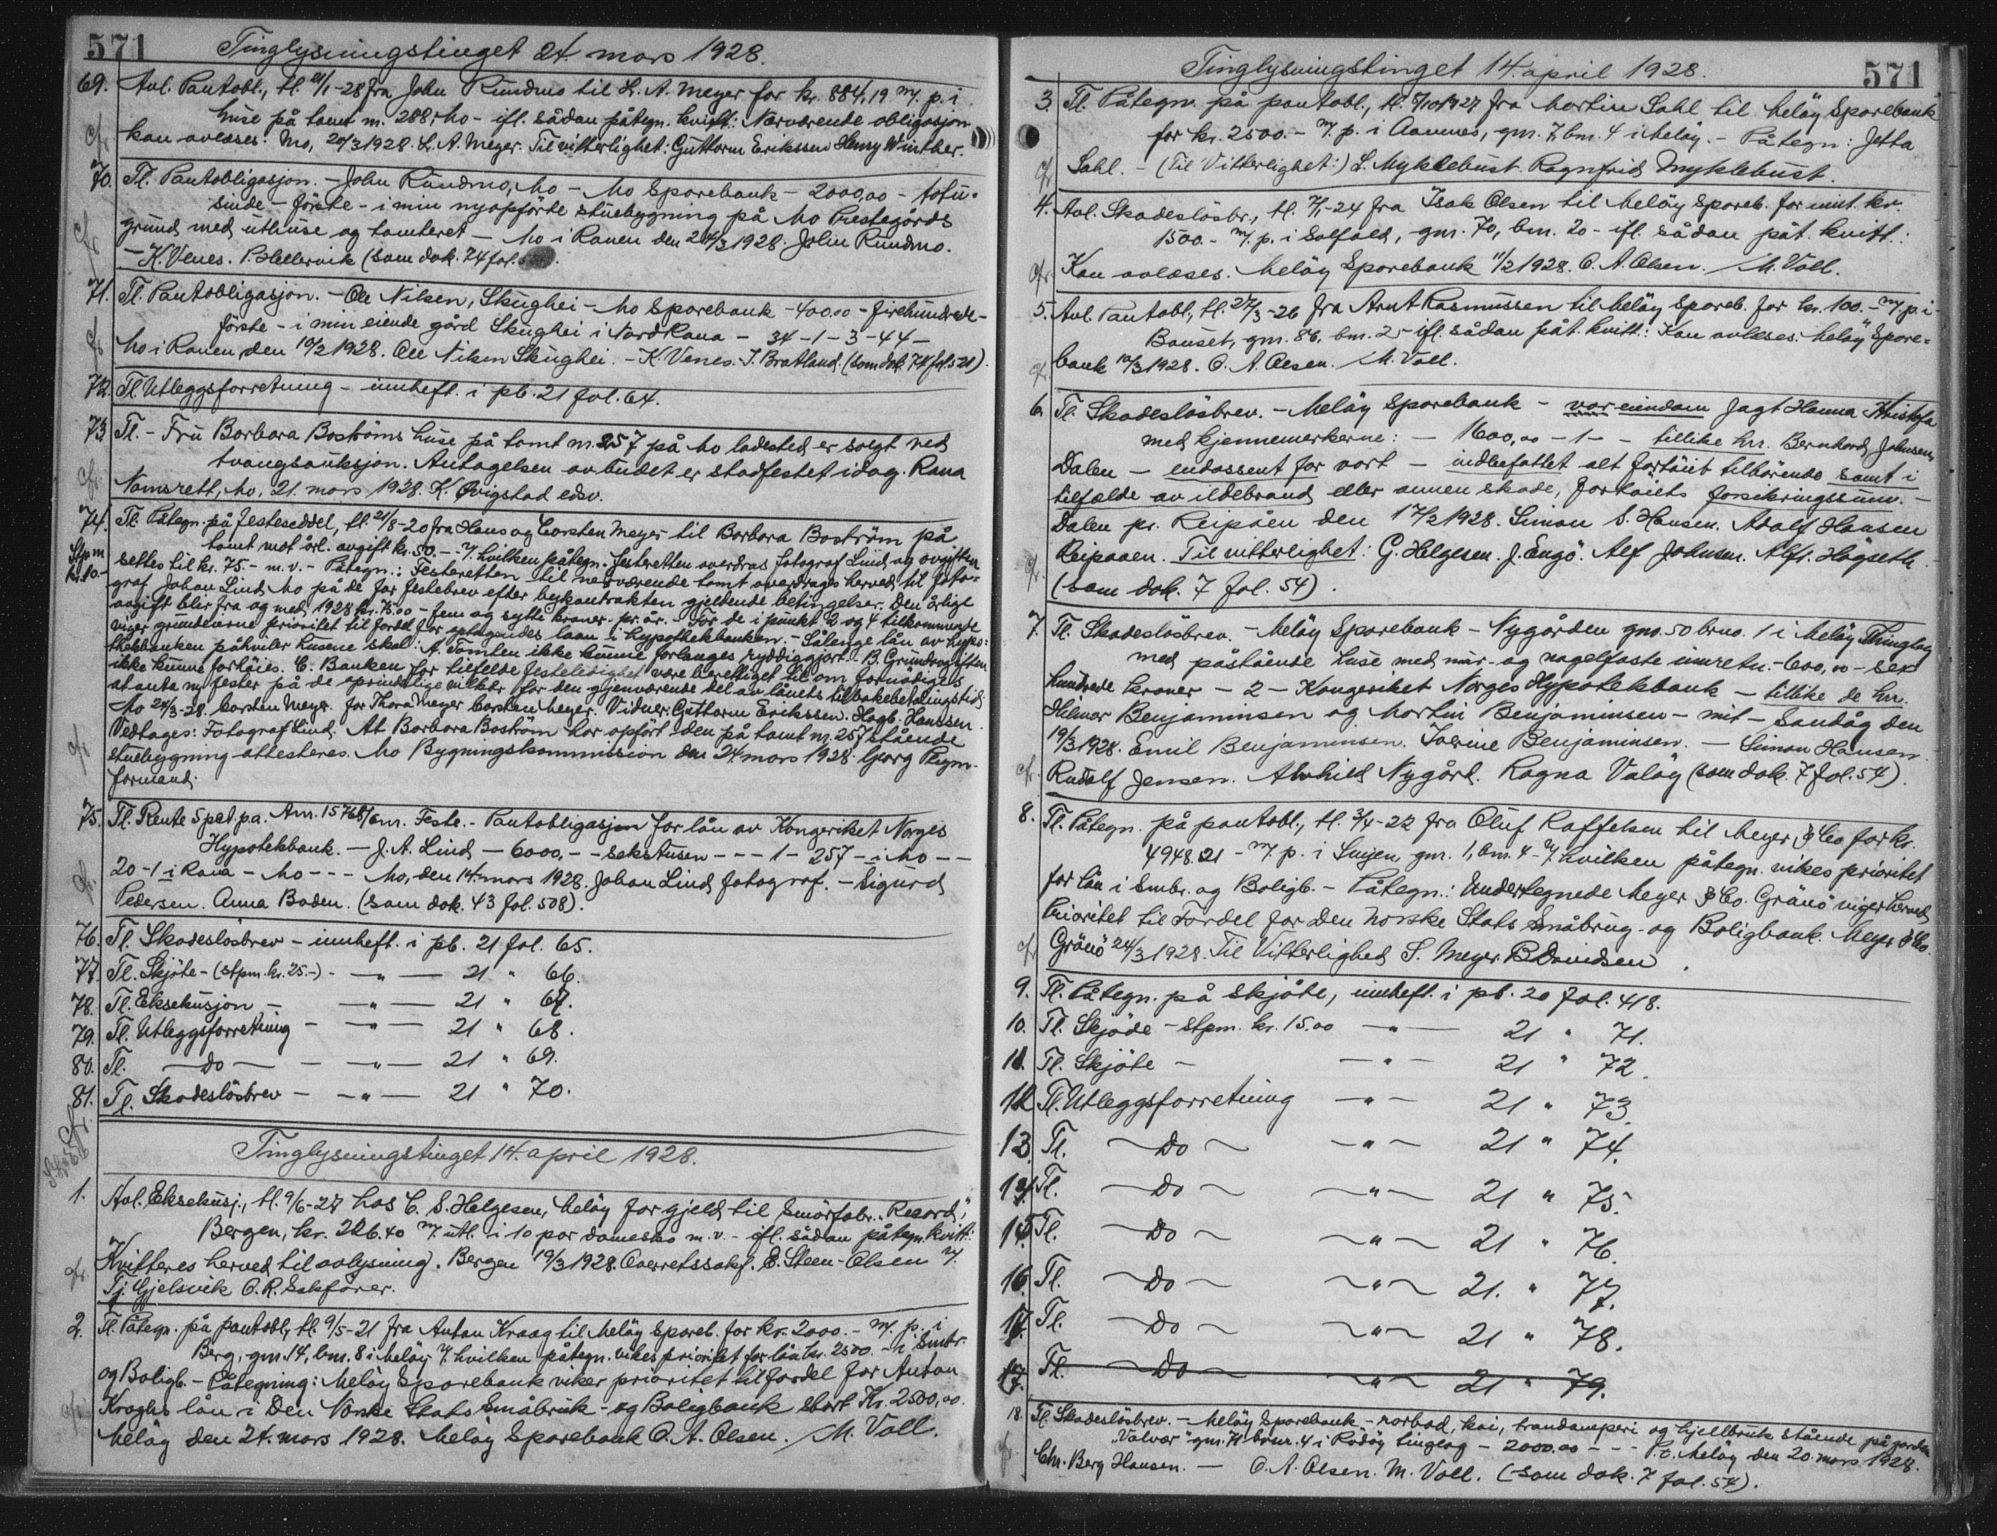 571
Tinglysningstinget 24. mars 1928.
69. Avl. Pantobl., tl. 21/1-28 fra John Rundmo til L. A. Meyer for kr. 884,19 m/. p. i
huse på tomt nr. 288, Mo - ifl. sådan påtegn. kvitt: Nærværende obligasjon
kan avlæses. Mo, 24/3 1928. L. A. Meyer. Til vitterlighet: Guttorm Erikssen Henry Winther.
70. Tl. Pantobligasjon. - John Rundmo, Mo - Mo Sparebank - 2000,00 - totu-
sinde - første - i min nyopførte stuebygning på Mo Prestegårds
grund med uthuse og tomteret - Mo i Ranen den 24/3 1928. John Rundmo.
- K. Venes. (som dok. 74 fol.
71. Tl. Pantobligasjon. - Ole Nilsen, Skughei - Mo Sparebank - 400,00 - firehundrede -
første - i min eiende gård Skughei i Nord Rana - 34 - 1 - 3 - 44 -
Mo i Ranen, den 10/2 1928. Ole Nilsen Skughei. - K. Venes. J. Bratland. (som dok. 74 fol. 521).
72. Tl. Utleggsforretning - innheft. i pb. 21 fol. 64.
73. Tl. - Fru Borbara Boströms huse på tomt nr. 257 på Mo ladested er solgt ved
tvangsauksjon. Antagelsen av budet er stadfestet idag. Rana
Namsrett, Mo, 21. mars 1928. K. Qvigstad edsv.
74. Tl. Påtegn. på festeseddel, tl. 21/8-20 fra Hans og Carsten Meyer til Barbara Boström på
Stpm kr. 10.-
tomt mot årl. avgift kr. 50.-- v/. hvilken påtegn. festeretten overdras fotograf Lind og avgiften
settes til kr. 75.- m. v. - Påtegn.: Festeretten til nærværende tomt overdrages herved til foto-
graf Johan Lind, Mo på de for festebrev efter bykontrakten gjeldende betingelser. Den årlige
avgift blir fra og med 1928 kr. 75.00 - fem og sytti kroner - pr. år. - For de i punkt 2 og 4 tilkommende
viger grundeierne prioritet til fordel for optagendes laan i hypothekbanken. - Sålenge lån av hypo-
thekbanken påhviler husene skal: A. Tomten ikke kunne forlanges ryddiggjort. B. Grundavgiften
ikke kunne forhøies. C. Banken for tilfelde festeledighet være berettiget til om fornødiges
at anta ny fester på de oprindelige vilkår for den gjenværende del av lånets tilbakebetalingstid
Mo 24/3-28. Carsten Meyer. for Thora Meyer Carsten Meyer. Vidner: Guttorm Erikssen. Hagb. Hanssen.
Vedtages: Fotograf Lind. At Barbara Boström har opført den på tomt nr. 257 stående
stuebygning attesteres. Mo Bygningskommission den 24 mars 1928. Georg
formand.
75. Tl. Rente 5 pct. p.a. Anr. 15768 Feste. - Pantobligasjon for lån av Kongeriket Norges
Hypotekbank. - J. A. Lind - 6000,- - sekstusen - - - 1 - 257 - i Mo - -
20 - 1 i Rana - Mo - - - Mo, den 14. mars 1928. Johan Lind fotograf. - Sigurd
Pedersen. Anna Boden. (som dok. 43 fol. 508).
76. Tl. Skadesløsbrev - innheft. i pb. 21 fol. 65.
77. Tl. Skjøte - (stpm. kr. 25.-) - - " - 21 " 66.
78. Tl. Eksekusjon - - " - 21 " 67.
79. Tl. Utleggsforretning - - " - 21 " 68.
80. Tl. - Do - - - " - 21 " 69.
81. Tl. Skadesløsbrev - - " - 21 " 70.
Tinglysningstinget 14. april 1928.
1. Avl. Eksekusj., tl. 9/6-27 hos C. S. Helgesen, Meløy for gjeld til Smørfabr. "Record",
Bergen, kr. 226.40 m/. utl. i 10 par damesko m. v. - ifl. sådan påtegn. kvitt:
Kvitteres herved til avlysning. Bergen 19/3 1928. Overretssakf. E. Steen-Olsen v/.
Tj. Gjelsvik O. R. Sakfører.
2. Tl. Påtegn. på pantobl., tl. 9/5-21 fra Anton Kraag til Meløy Spareb. for kr. 2000.- m/. p. i
Berg, gnr. 14, bnr. 8 i Meløy v/. hvilken påtegn. vikes prioritet for lån kr. 2500.- i Smbr.
og Boligb. - Påtegning: Meløy Sparebank viker prioritet til fordel for Anton
Kraghs lån i Den Norske Stats Småbruk- og Boligbank stort Kr. 2500,00.
Meløy den 24. mars 1928. Meløy Sparebank O. A. Olsen. / M. Voll.
Tinglysningstinget 14. april 1928.
571
3. Tl. Påtegn. på pantobl., tl. 7/10 1927 fra Martin Dahl til Meløy Sparebank
for kr. 2500.- m/. p. i Aamnes, gnr. 7, bnr. 4 i Meløy. - Påtegn: Jetta
Dahl. - (Til Vitterlighet:) L. Myklebust. Ragnfrid Myklebust.
4. Avl. Skadesløsbr., tl. 7/1-24 fra Isak Olsen til Meløy Spareb. for innt. kr.
1500.- m/. p. i Solfald, gnr. 70, bnr. 20 - ifl. sådan påt. kvitt.:
Kan avlæses. Meløy Sparebank 11/2 1928. O. A. Olsen. / M. Voll.
5. Avl. Pantobl., tl. 27/3-26 fra Arnt Rasmussen til Meløy Spareb. for kr. 100.- m/. p. i
Bauset, gnr. 86, bnr. 2 - ifl. sådan påt. kvitt: Kan avlæses. Meløy Spare-
bank 10/3 1928. O. A. Olsen. / M. Voll.
6. Tl. Skadesløsbrev. - Meløy Sparebank - vor eiendom Jagt Hanna Kristofa
med kjennemerkerne: - 1600,00 - 1 - - tillike hr. Bernhard Johnsen,
Dalen - endossent for vort - indbefattet alt fartøiet tilhørende samt i
tilfælde av ildebrand eller annen skade, fartøiets forsikringssum. -
Dalen pr. Reipåen den 17/2 1928. Simon S. Hansen. Adolf Hansen
Reipaaen. Til vitterlighet: G. Helgesen. J. Engø. Alf Johnsen. Alfr. Høgseth.
(som dok. 7 fol. 54).
7. Tl. Skadesløsbrev. - Meløy Sparebank - Nygården gno. 50 bno. 1 i Meløy Thinglag
med påstående huse med mur- og nagelfaste innretn. - 600,00 - sex
hundrede kroner - 2 - Kongeriket Norges Hypotekbank - tillike de hrr.
Hilmar Benjaminsen og Martin Benjaminsen - mit - Sandåg den
19/3 1928. Emil Benjaminsen. Josine Benjaminsen. - Simon Hansen
Rudolf Jensen. Alvhild Nygård. Ragna Valøy (som dok. 7 fol. 54).
8. Tl. Påtegn. på pantobl., tl. 3/4-22 fra Oluf Raffelsen til Meyer & Co for kr.
4948.21 - m/. p. i gnr. 1, bnr. 4 - v/. hvilken påtegn. vikes prioritet
for lån i Smbr. og Boligb. - Påtegn.: Undertegnede Meyer & Co. Grønø viger herved
Prioritet til Fordel for Den Norske Stats Småbrug- og Boligbank. Meyer & Co.
Grønø 24/3 1928. Til Vitterlighed S. Meyer. B. Davidsen.
9. Tl. Påtegn. på skjøte, innheft. i pb. 20 fol. 418.
10. Tl. Skjøde - stpm. kr. 15.00 - " - 21 " 71.
11. Tl. Skjøte - - " - 21 " 72.
12. Tl. Utleggsforretning - " - 21 " 73.
13. Tl. - Do - - " - 21 " 74.
14. Tl. - Do - - " - 21 " 75.
15. Tl. - Do - - " - 21 " 76.
16. Tl. - Do - - " - 21. " 77.
17. Tl. - Do - - " - 21 " 78.
17. Tl. - Do - - " - 21 " 79.
18. Tl. Skadesløsbrev. - Meløy Sparebank - rorbod, kai, trandamperi og hjellbruk stående på gården
"Valvær" gnr. 71 bnr. 4 i Rødøy tinglag - 2000.00 - - - P.t. Meløy den 20. mars 1928.
Chr. Berg Hansen. - O. A. Olsen. M. Voll. (som dok. 7 fol. 54).